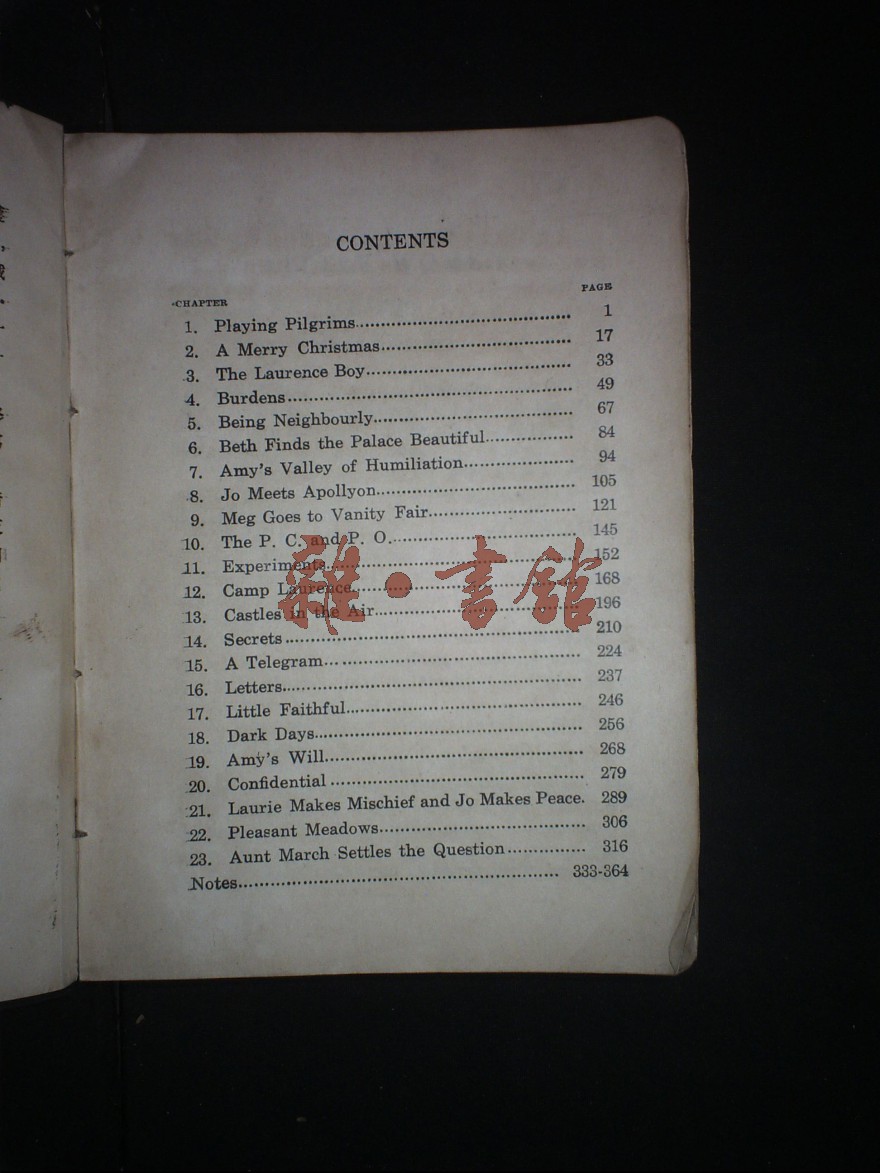 CONTENTS
CHAPTER PAGE
1. Playing Pilgrims 1
2. A Merry Christmas 17
3. The Laurence Boy 33
4. Burdens 49
5. Being Neighbourly 67
6. Beth Finds the Palace Beautiful 84
7. Amy's Valley of Humiliation 94
8. Jo Meets Apollyon 105
9. Meg Goes to Vanity Fair 121
10. The P. C. and P. O. 145
11. Experiments 152
12. Camp Laurence 168
13. Castles in the Air 196
14. Secrets 210
15. A Telegram 224
16. Letters 237
17. Little Faithful 246
18. Dark Days 256
19. Amy's Will 268
20. Confidential 279
21. Laurie Makes Mischief and Jo Makes Peace. 289
22. Pleasant Meadows 306
23. Aunt March Settles the Question 316
Notes 333-364
雜·書館